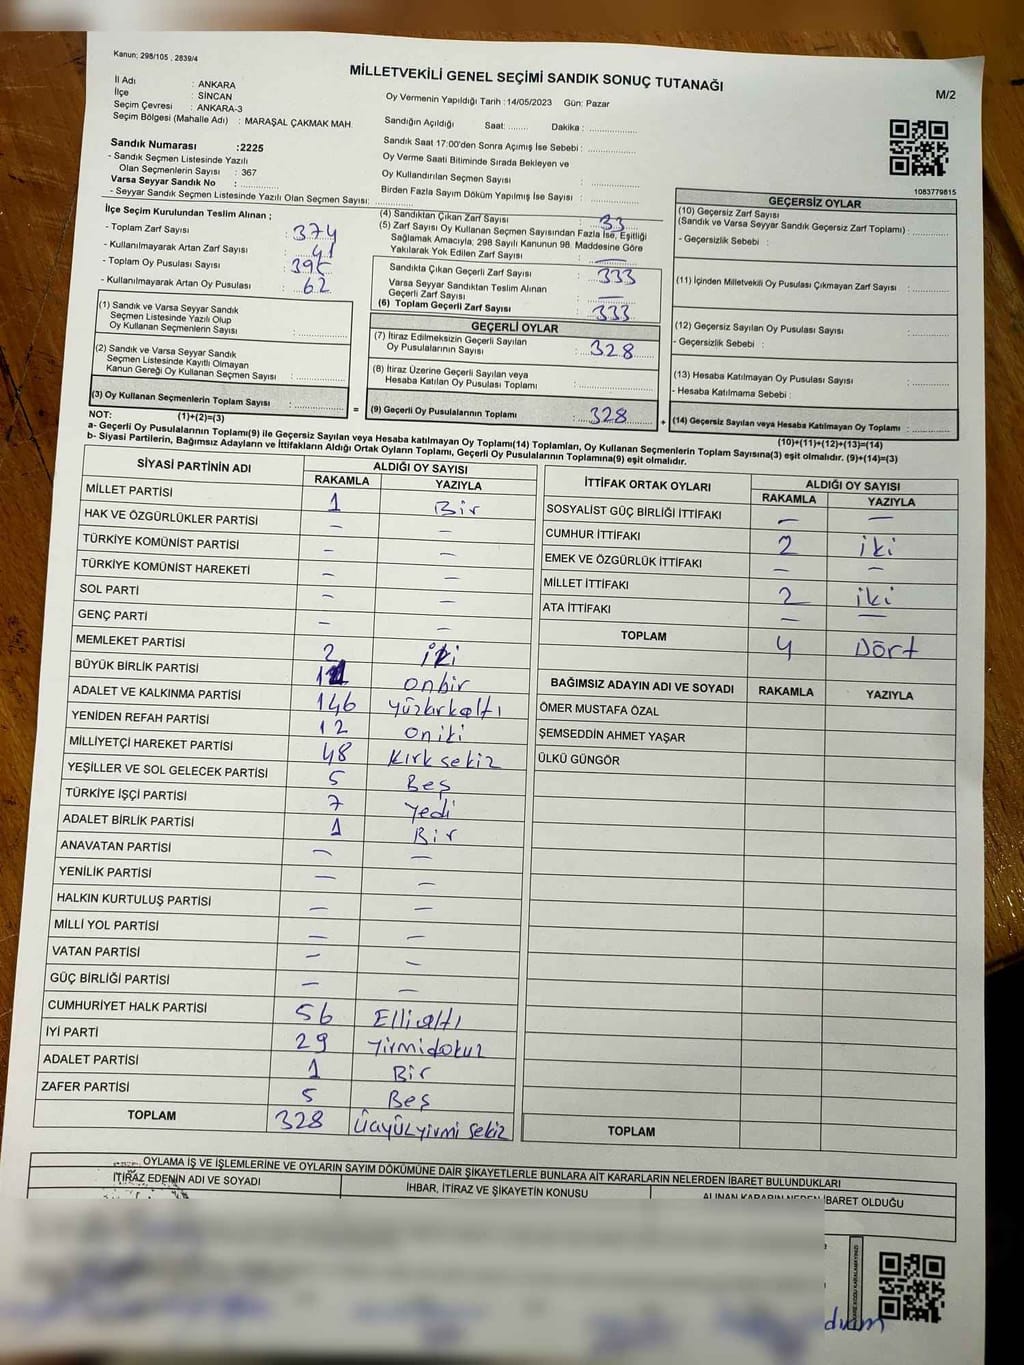 Kanun; 298/105 , 2839/4
MİLLETVEKİLİ GENEL SEÇİMİ SANDIK SONUÇ TUTANAĞI
M/2
İl Adı : ANKARA
İlçe : SİNCAN
Seçim Çevresi : ANKARA-3
Seçim Bölgesi (Mahalle Adı) : MARAŞAL ÇAKMAK MAH.
Sandık Numarası :2225
- Sandık Seçmen Listesinde Yazılı
Olan Seçmenlerin Sayısı : 367
Varsa Seyyar Sandık No : ............
- Seyyar Sandık Seçmen Listesinde Yazılı Olan Seçmen Sayısı: ............
Oy Vermenin Yapıldığı Tarih :14/05/2023 Gün: Pazar
Sandığın Açıldığı Saat: ........ Dakika : ..................
Sandık Saat 17:00'den Sonra Açımış İse Sebebi : ............
Oy Verme Saati Bitiminde Sırada Bekleyen ve
Oy Kullandırılan Seçmen Sayısı : ............
Birden Fazla Sayım Döküm Yapılmış İse Sayısı : ............
1083779815
İlçe Seçim Kurulundan Teslim Alınan ;
- Toplam Zarf Sayısı : 374
- Kullanılmayarak Artan Zarf Sayısı : 41
- Toplam Oy Pusulası Sayısı : 395
- Kullanılmayarak Artan Oy Pusulası : 62
(1) Sandık ve Varsa Seyyar Sandık
Seçmen Listesinde Yazılı Olup
Oy Kullanan Seçmenlerin Sayısı : ............
(2) Sandık ve Varsa Seyyar Sandık
Seçmen Listesinde Kayıtlı Olmayan
Kanun Gereği Oy Kullanan Seçmen Sayısı : ............
(3) Oy Kullanan Seçmenlerin Toplam Sayısı : ............
(4) Sandıktan Çıkan Zarf Sayısı : 33
(5) Zarf Sayısı Oy Kullanan Seçmen Sayısından Fazla İse, Eşitliği
Sağlamak Amacıyla; 298 Sayılı Kanunun 98. Maddesine Göre
Yakılarak Yok Edilen Zarf Sayısı : —
Sandıkta Çıkan Geçerli Zarf Sayısı : 333
Varsa Seyyar Sandıktan Teslim Alınan
Geçerli Zarf Sayısı : —
(6) Toplam Geçerli Zarf Sayısı : 333
GEÇERLİ OYLAR
(7) İtiraz Edilmeksizin Geçerli Sayılan
Oy Pusulalarının Sayısı : 328
(8) İtiraz Üzerine Geçerli Sayılan veya
Hesaba Katılan Oy Pusulası Toplamı : ............
= (9) Geçerli Oy Pusulalarının Toplamı : 328 +
GEÇERSİZ OYLAR
(10) Geçersiz Zarf Sayısı
(Sandık ve Varsa Seyyar Sandık Geçersiz Zarf Toplamı) : ............
- Geçersizlik Sebebi :
(11) İçinden Milletvekili Oy Pusulası Çıkmayan Zarf Sayısı : ............
(12) Geçersiz Sayılan Oy Pusulası Sayısı : ............
- Geçersizlik Sebebi :
(13) Hesaba Katılmayan Oy Pusulası Sayısı : ............
- Hesaba Katılmama Sebebi :
(14) Geçersiz Sayılan veya Hesaba Katılmayan Oy Toplamı : ............
NOT: (1)+(2)=(3)
(10)+(11)+(12)+(13)=(14)
a- Geçerli Oy Pusulalarının Toplamı(9) ile Geçersiz Sayılan veya Hesaba katılmayan Oy Toplamı(14) Toplamları, Oy Kullanan Seçmenlerin Toplam Sayısına(3) eşit olmalıdır. (9)+(14)=(3)
b- Siyasi Partilerin, Bağımsız Adayların ve İttifakların Aldığı Ortak Oyların Toplamı, Geçerli Oy Pusulalarının Toplamına(9) eşit olmalıdır.
SİYASİ PARTİNİN ADI ALDIĞI OY SAYISI
RAKAMLA YAZIYLA
MİLLET PARTİSİ 1 Bir
HAK VE ÖZGÜRLÜKLER PARTİSİ — —
TÜRKİYE KOMÜNİST PARTİSİ — —
TÜRKİYE KOMÜNİST HAREKETİ — —
SOL PARTİ — —
GENÇ PARTİ — —
MEMLEKET PARTİSİ 2 iki
BÜYÜK BİRLİK PARTİSİ 11 onbir
ADALET VE KALKINMA PARTİSİ 146 Yüzkırkaltı
YENİDEN REFAH PARTİSİ 12 oniki
MİLLİYETÇİ HAREKET PARTİSİ 48 Kırksekiz
YEŞİLLER VE SOL GELECEK PARTİSİ 5 Beş
TÜRKİYE İŞÇİ PARTİSİ 7 Yedi
ADALET BİRLİK PARTİSİ 1 Bir
ANAVATAN PARTİSİ — —
YENİLİK PARTİSİ — —
HALKIN KURTULUŞ PARTİSİ — —
MİLLİ YOL PARTİSİ — —
VATAN PARTİSİ — —
GÜÇ BİRLİĞİ PARTİSİ — —
CUMHURİYET HALK PARTİSİ 56 Ellialtı
İYİ PARTİ 29 Yirmidokuz
ADALET PARTİSİ 1 Bir
ZAFER PARTİSİ 5 Beş
TOPLAM 328 Üçyüzyirmi sekiz
İTTİFAK ORTAK OYLARI ALDIĞI OY SAYISI
RAKAMLA YAZIYLA
SOSYALİST GÜÇ BİRLİĞİ İTTİFAKI — —
CUMHUR İTTİFAKI 2 iki
EMEK VE ÖZGÜRLÜK İTTİFAKI — —
MİLLET İTTİFAKI 2 iki
ATA İTTİFAKI — —
TOPLAM 4 Dört
BAĞIMSIZ ADAYIN ADI VE SOYADI RAKAMLA YAZIYLA
ÖMER MUSTAFA ÖZAL
ŞEMSEDDİN AHMET YAŞAR
ÜLKÜ GÜNGÖR
TOPLAM
OYLAMA İŞ VE İŞLEMLERİNE VE OYLARIN SAYIM DÖKÜMÜNE DAİR ŞİKAYETLERLE BUNLARA AİT KARARLARIN NELERDEN İBARET BULUNDUKLARI
İTİRAZ EDENİN ADI VE SOYADI İHBAR, İTİRAZ VE ŞİKAYETİN KONUSU ALINAN KARARIN NEDEN İBARET OLDUĞU